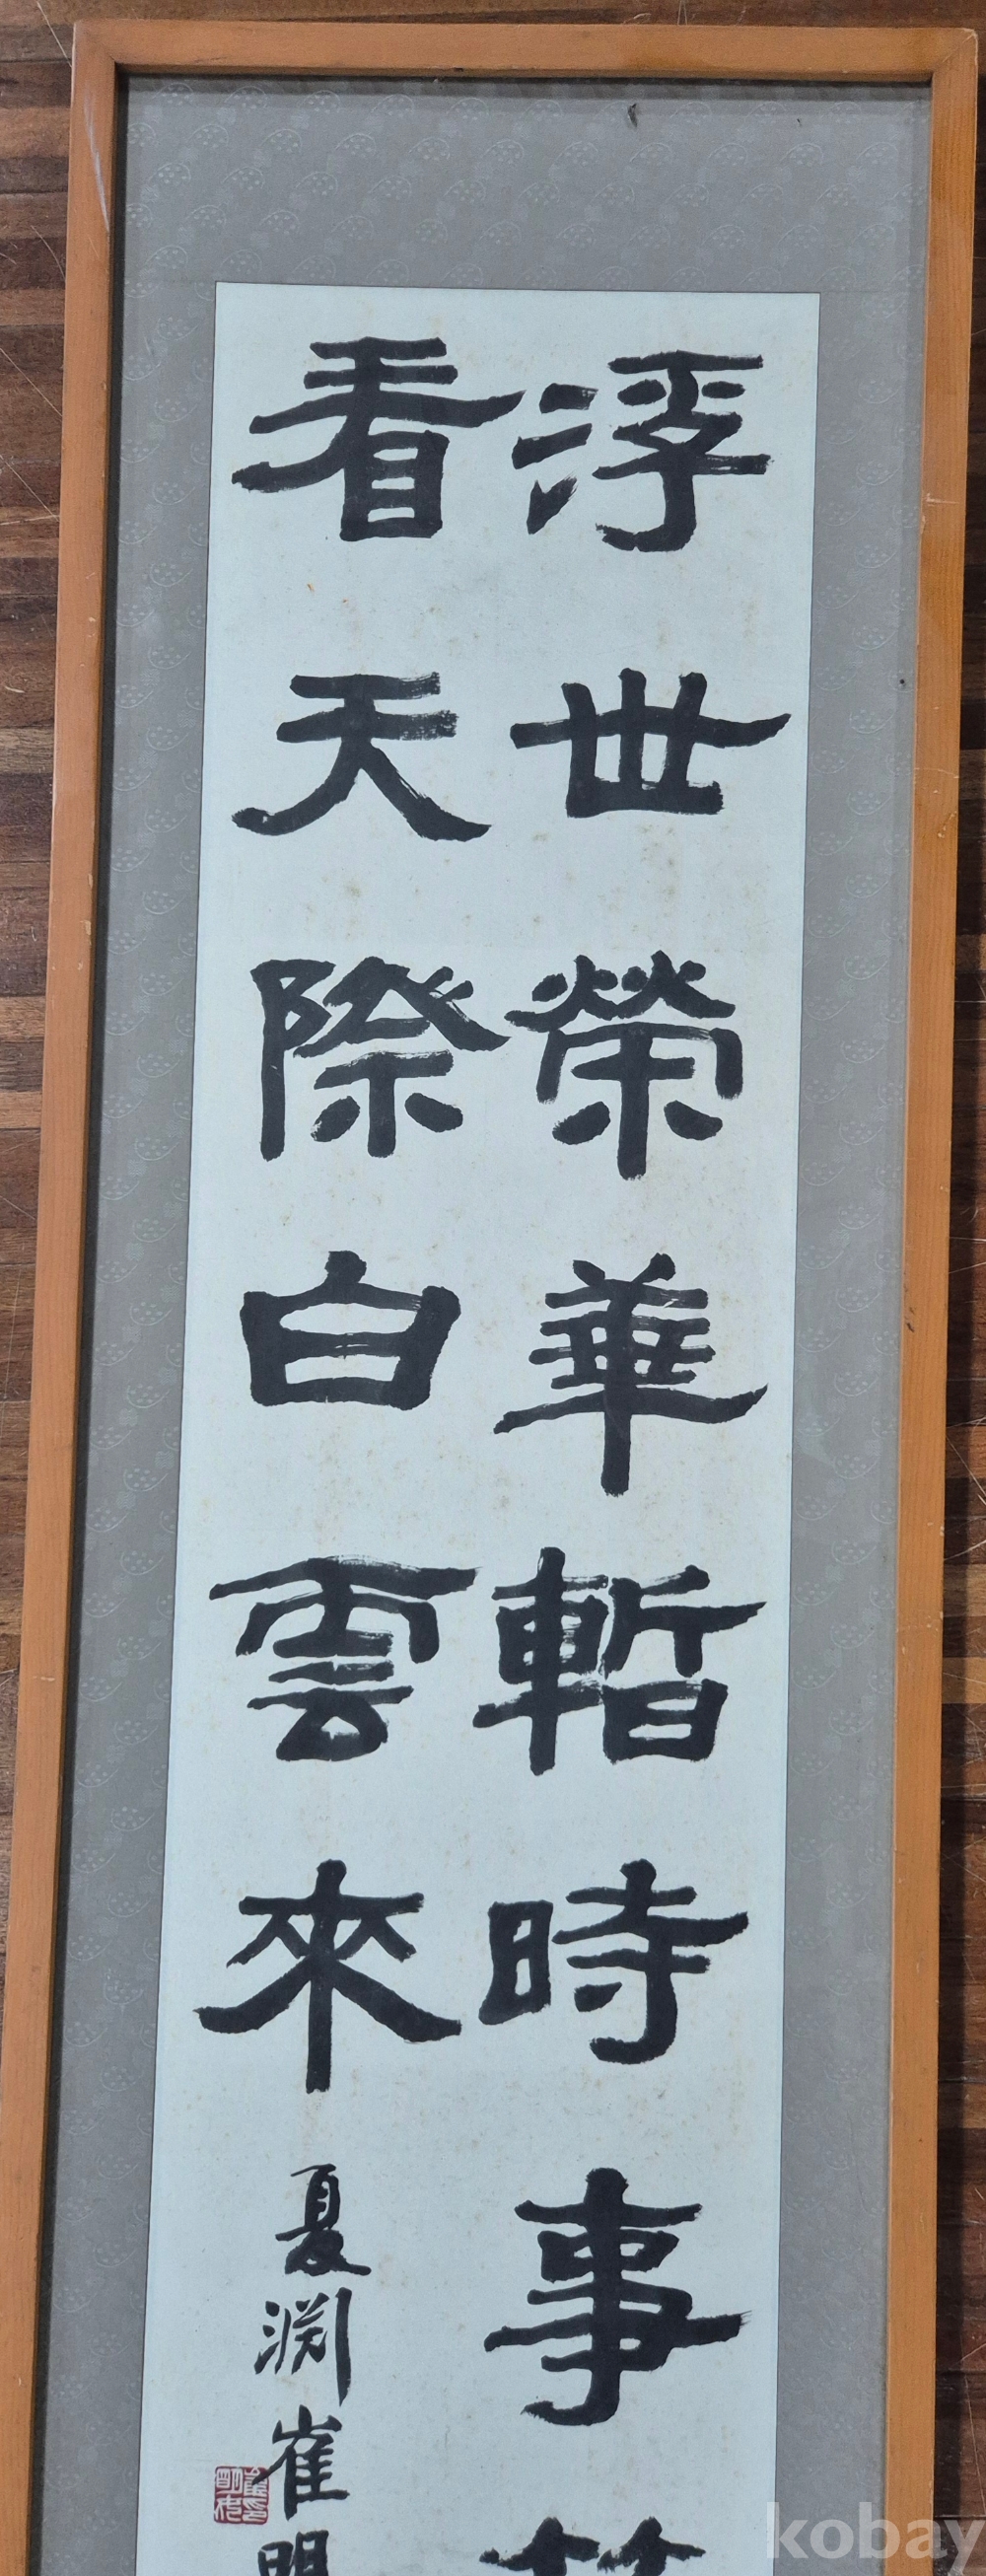 浮世榮華暫時事
看天際白雲來
夏淵崔明
kobay